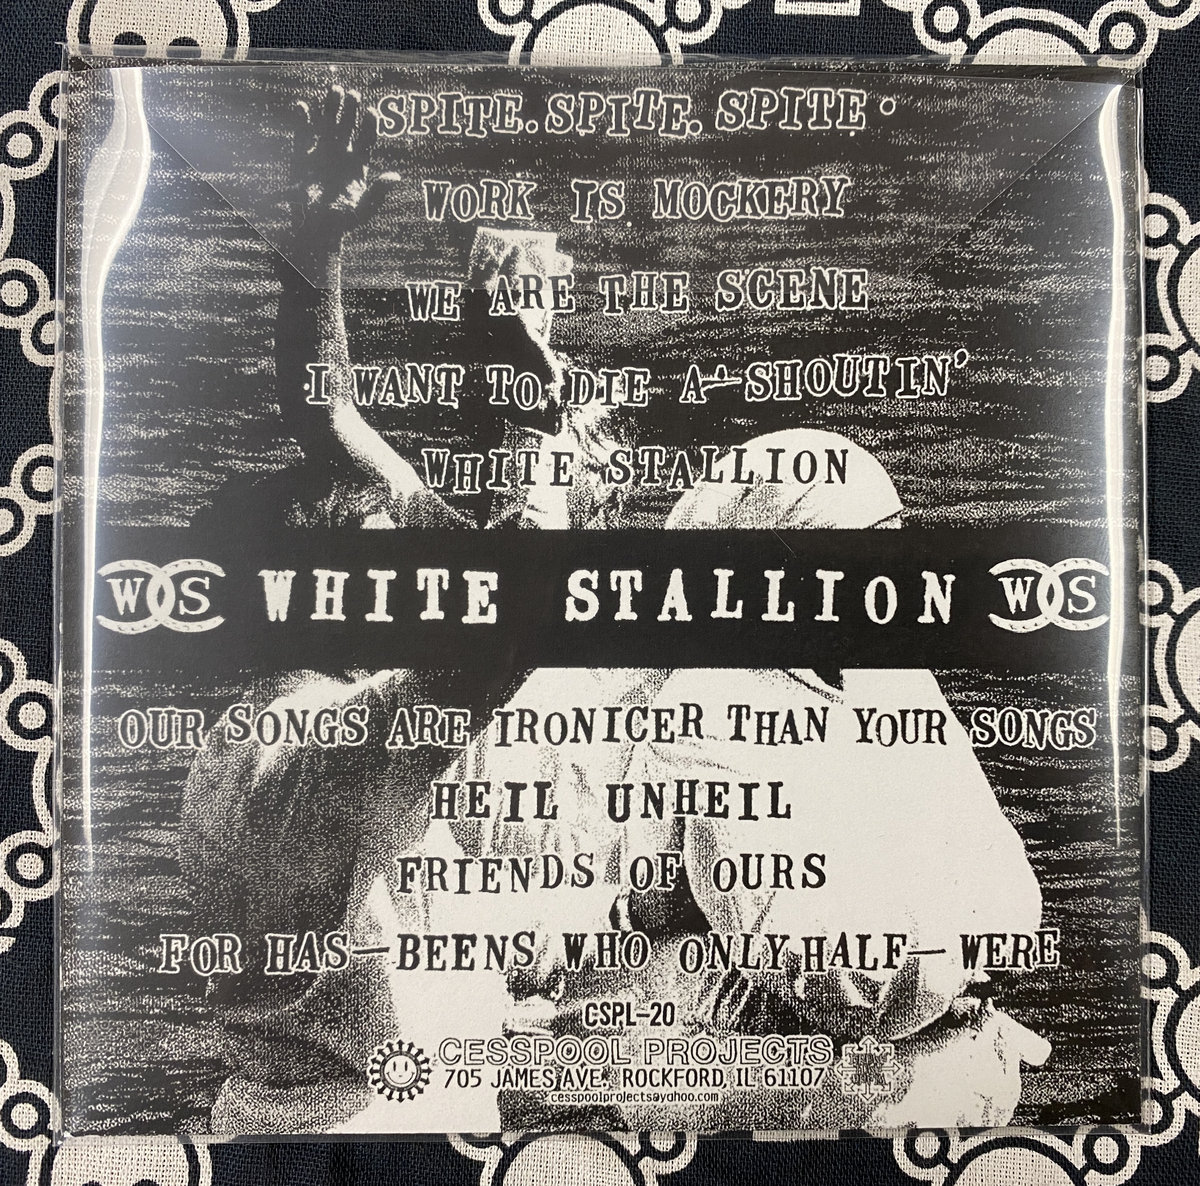 SPITE. SPITE. SPITE.
WORK IS MOCKERY
WE ARE THE SCENE
I WANT TO DIE A-SHOUTIN'
WHITE STALLION
WS WHITE STALLION WS
OUR SONGS ARE IRONICER THAN YOUR SONGS
HEIL UNHEIL
FRIENDS OF OURS
FOR HAS-BEENS WHO ONLY HALF-WERE
CSPL-20
CESSPOOL PROJECTS
705 JAMES AVE. ROCKFORD, IL 61107
cesspoolprojects@yahoo.com